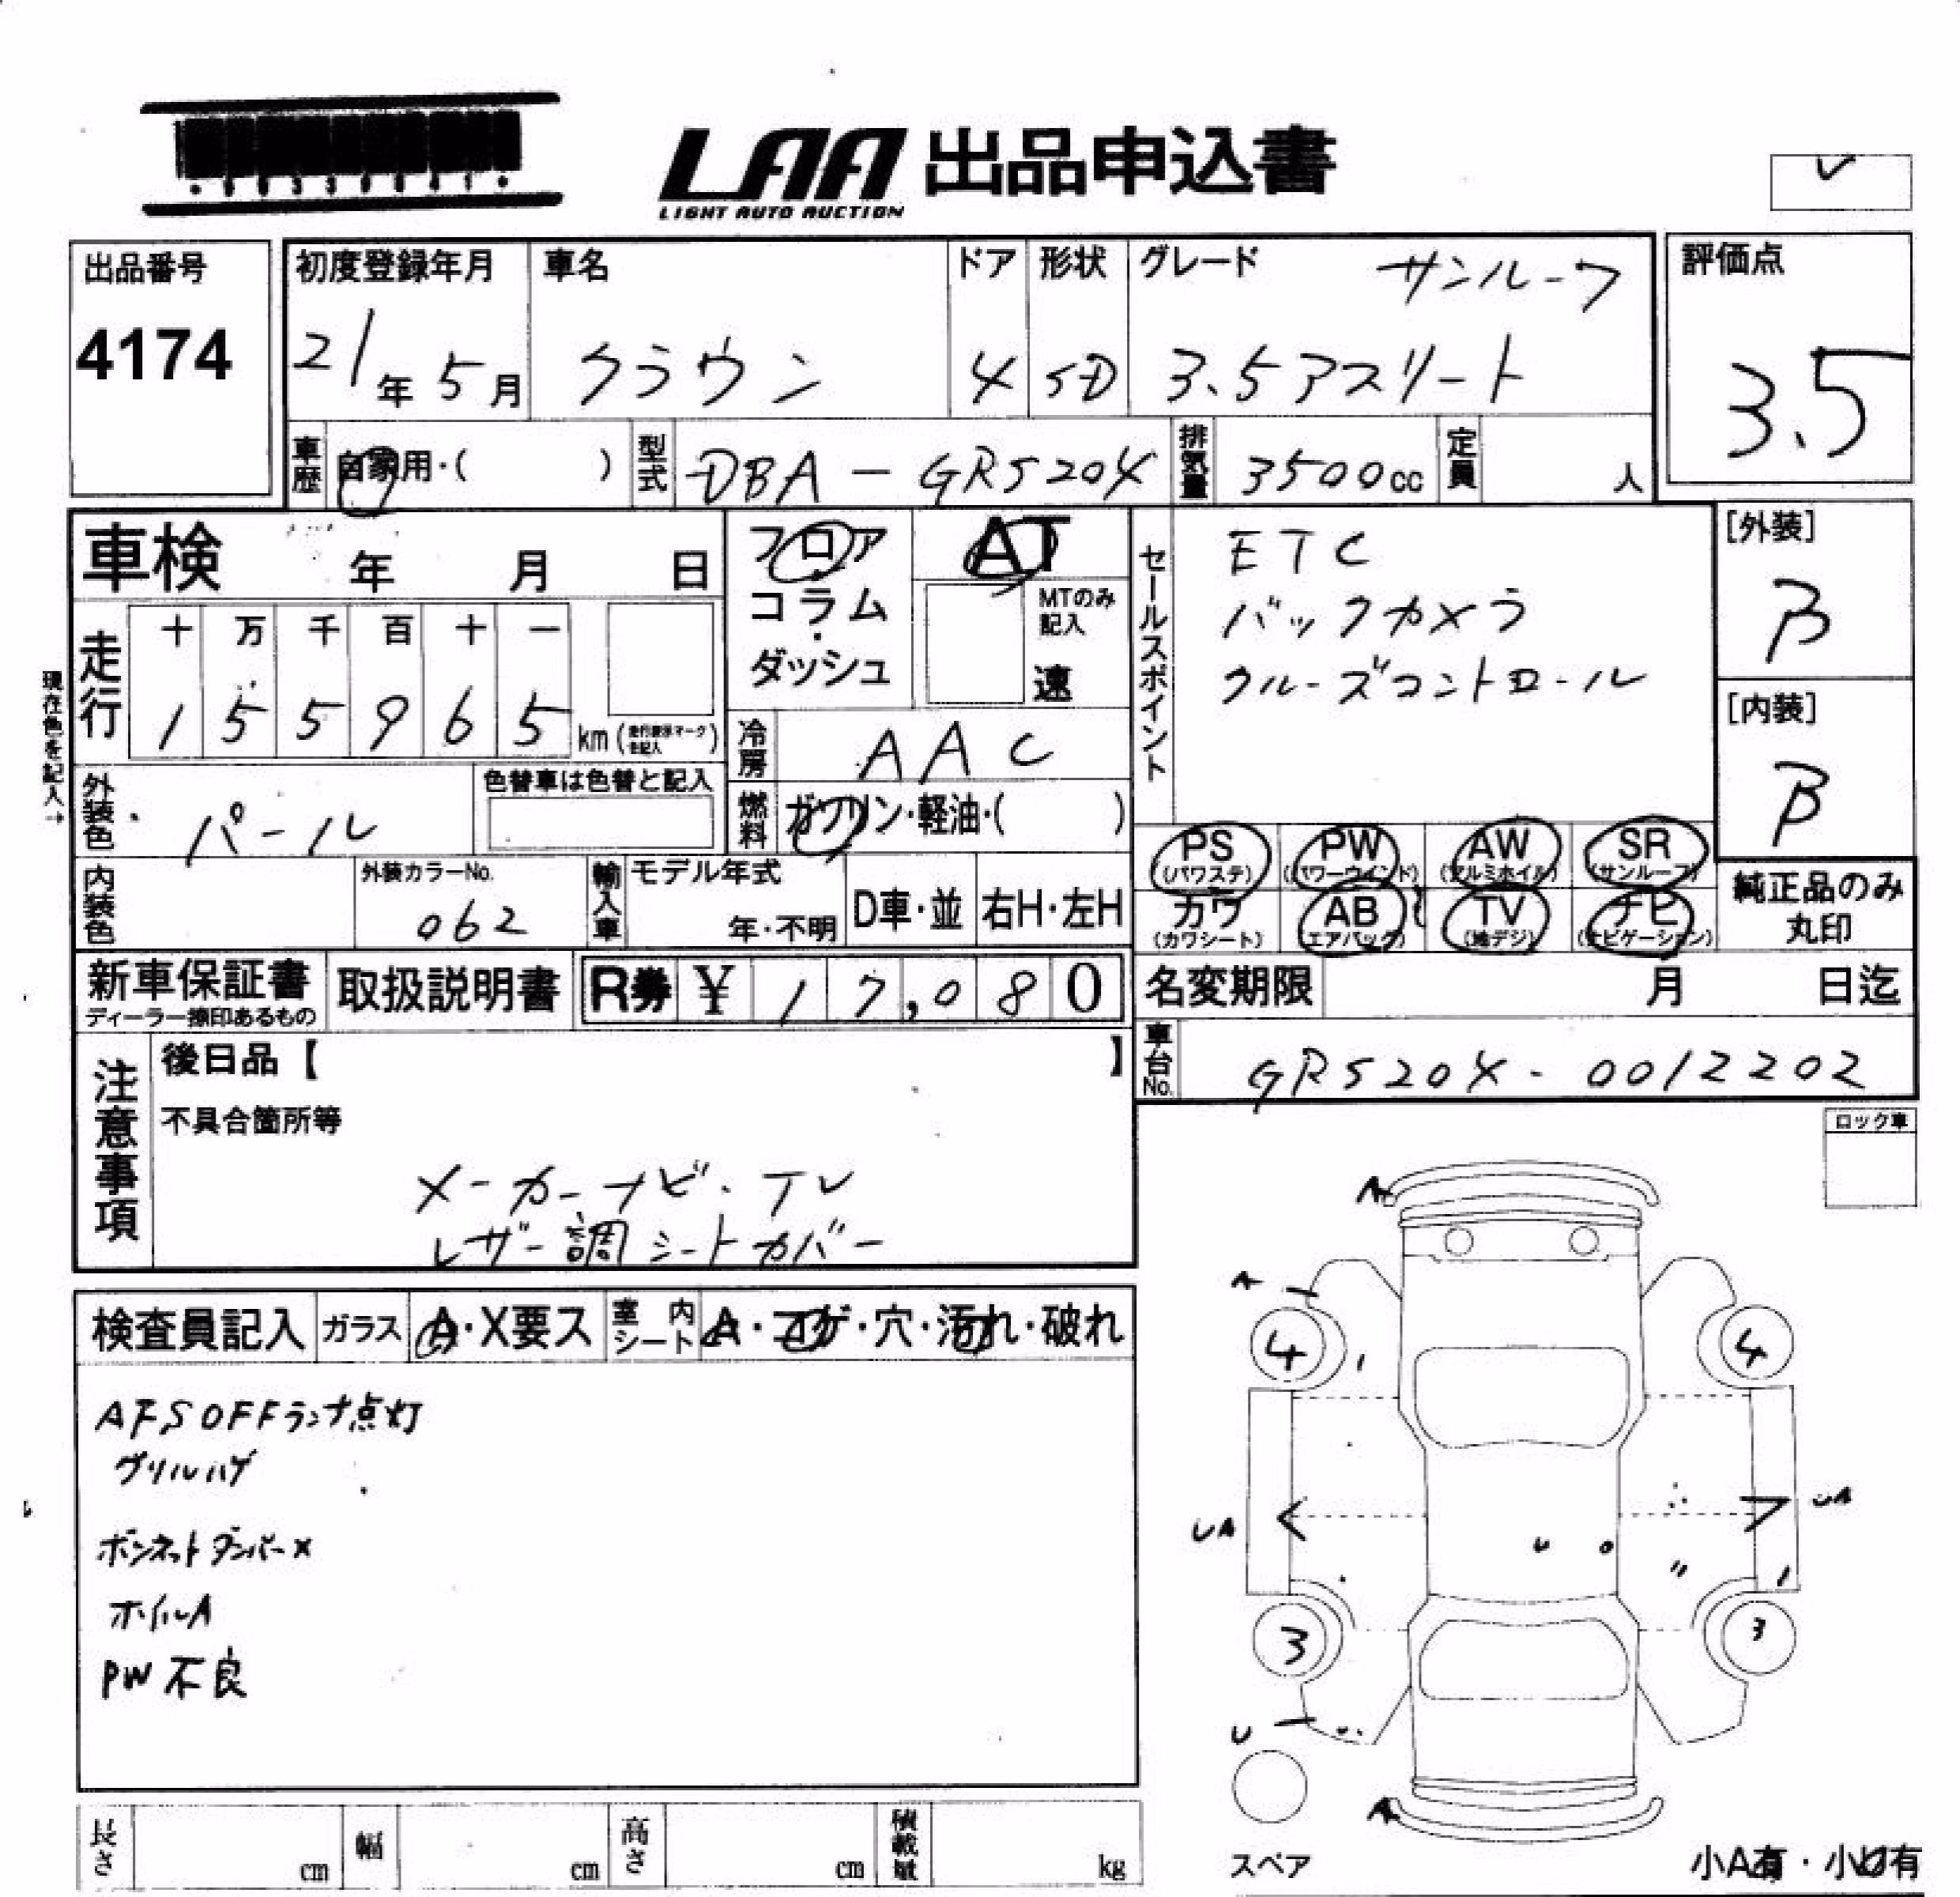 LAA 出品申込書
LIGHT AUTO AUCTION
出品番号
4174
初度登録年月
21年5月
車名
クラウン
ドア
4
形状
SD
グレード
サンルーフ
3.5アスリート
評価点
3.5
車歴
自家用・( )
型式
DBA-GRS204
排気量
3500cc
定員
人
車検 年 月 日
フロア
コラム
・
ダッシュ
AT
MTのみ記入
速
セールスポイント
ETC
バックカメラ
クルーズコントロール
[外装]
B
[内装]
B
現在色を記入→
走行
十 万 千 百 十 一
1 5 5 9 6 5 km
冷房
AAC
外装色
パール
色替車は色替と記入
燃料
ガソリン・軽油・( )
PS (パワステ)
PW (パワーウインド)
AW (アルミホイル)
SR (サンルーフ)
カワ (カワシート)
AB (エアバッグ)
TV (地デジ)
ナビ (ナビゲーション)
純正品のみ丸印
内装色
外装カラーNo.
062
輸入車
モデル年式
年・不明
D車・並
右H・左H
新車保証書
ディーラー捺印あるもの
取扱説明書
R券 ¥ 17,080
名変期限 月 日迄
車台No.
GRS204-0012202
注意事項
後日品【 】
不具合箇所等
メーカーナビ・TV
レザー調シートカバー
ロック車
検査員記入
ガラス
A・X要ス
室内シート
A・コゲ・穴・汚れ・破れ
AFS OFFランプ点灯
グリルハゲ
ボンネットダンパー×
ホイルA
PW不良
A
A
4
4
UA
UA
3
3
U
A
スペア
小A有・小U有
長さ cm
幅 cm
高さ cm
積載量 kg